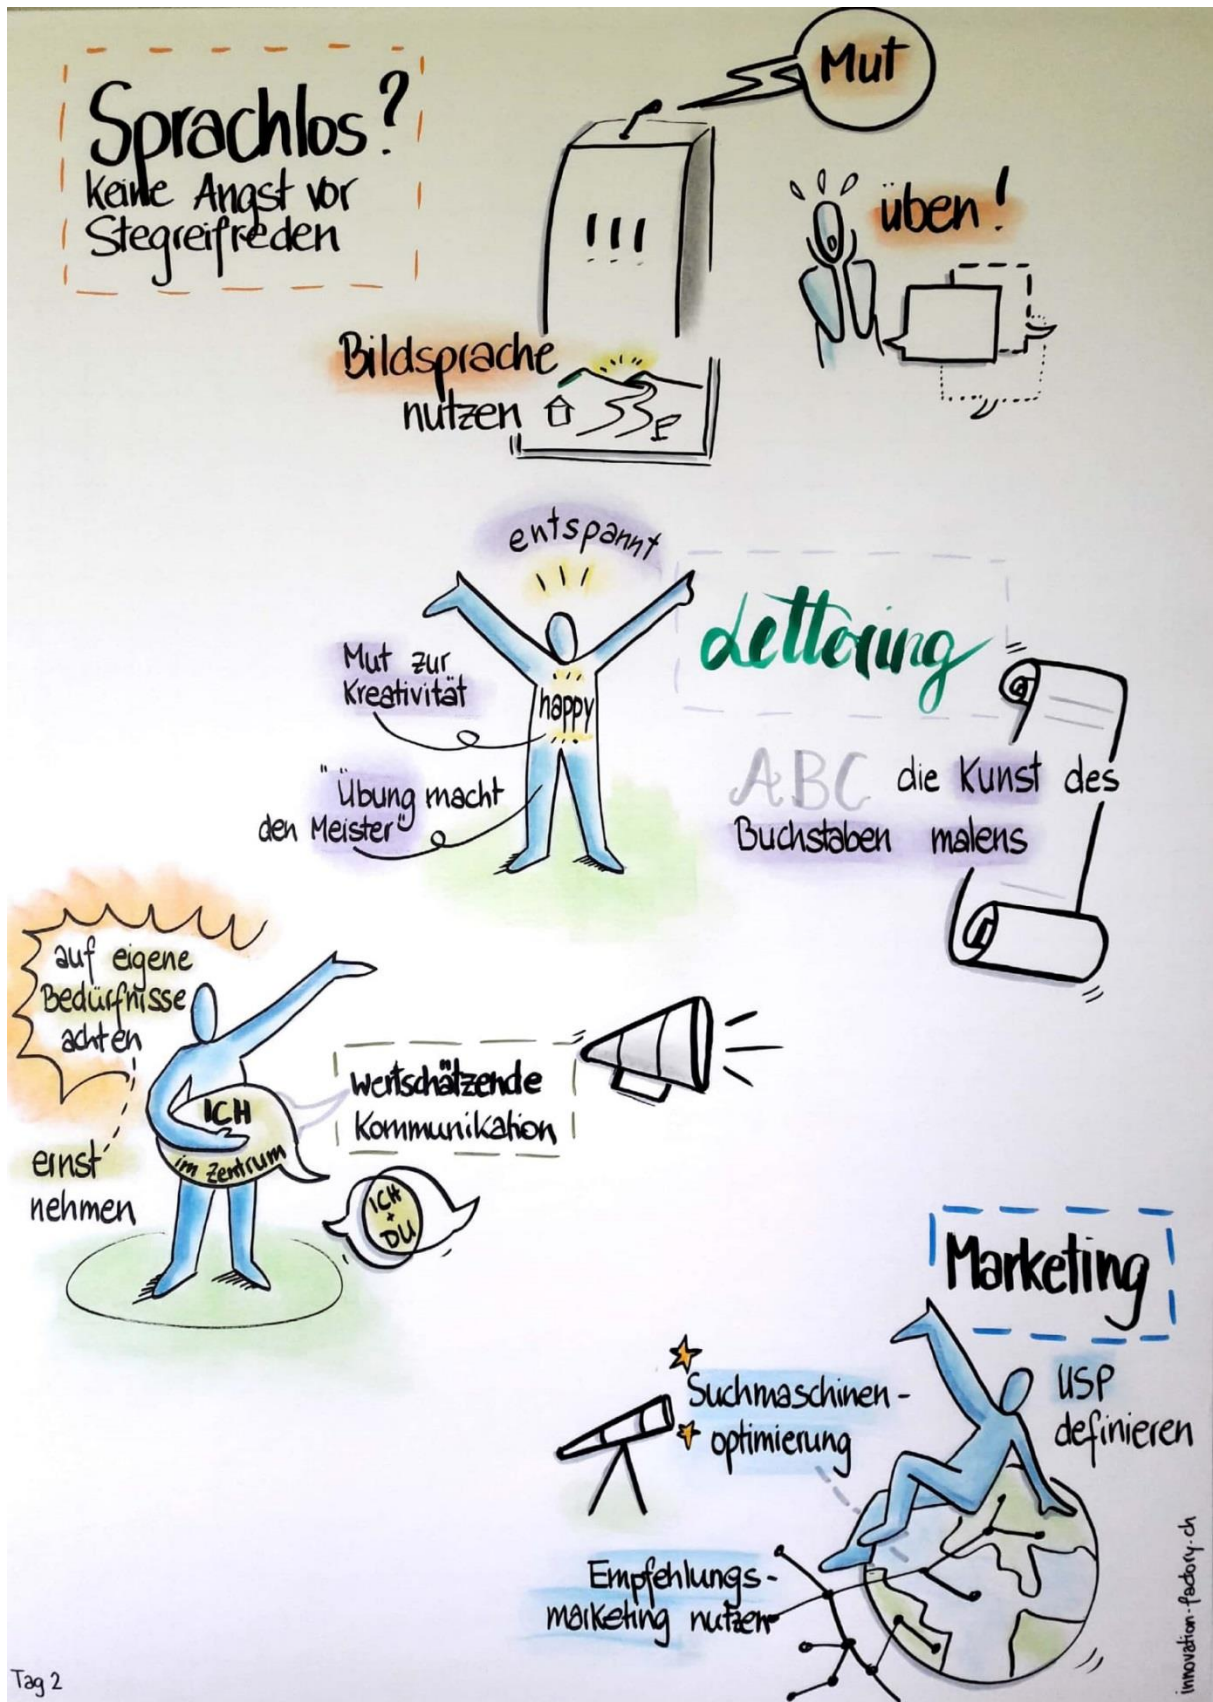 Sprachlos?
Keine Angst vor
Stegreifreden
Mut
!!!
üben!
Bildsprache
nutzen
entspannt
Mut zur
Kreativität
happy
"Übung macht
den Meister"
Lettering
ABC die Kunst des
Buchstaben malens
auf eigene
Bedürfnisse
achten
ernst
nehmen
ICH
im Zentrum
wertschätzende
Kommunikation
ICH
+
DU
Marketing
USP
definieren
Suchmaschinen-
optimierung
Empfehlungs-
marketing nutzen
Tag 2
innovation-factory.ch